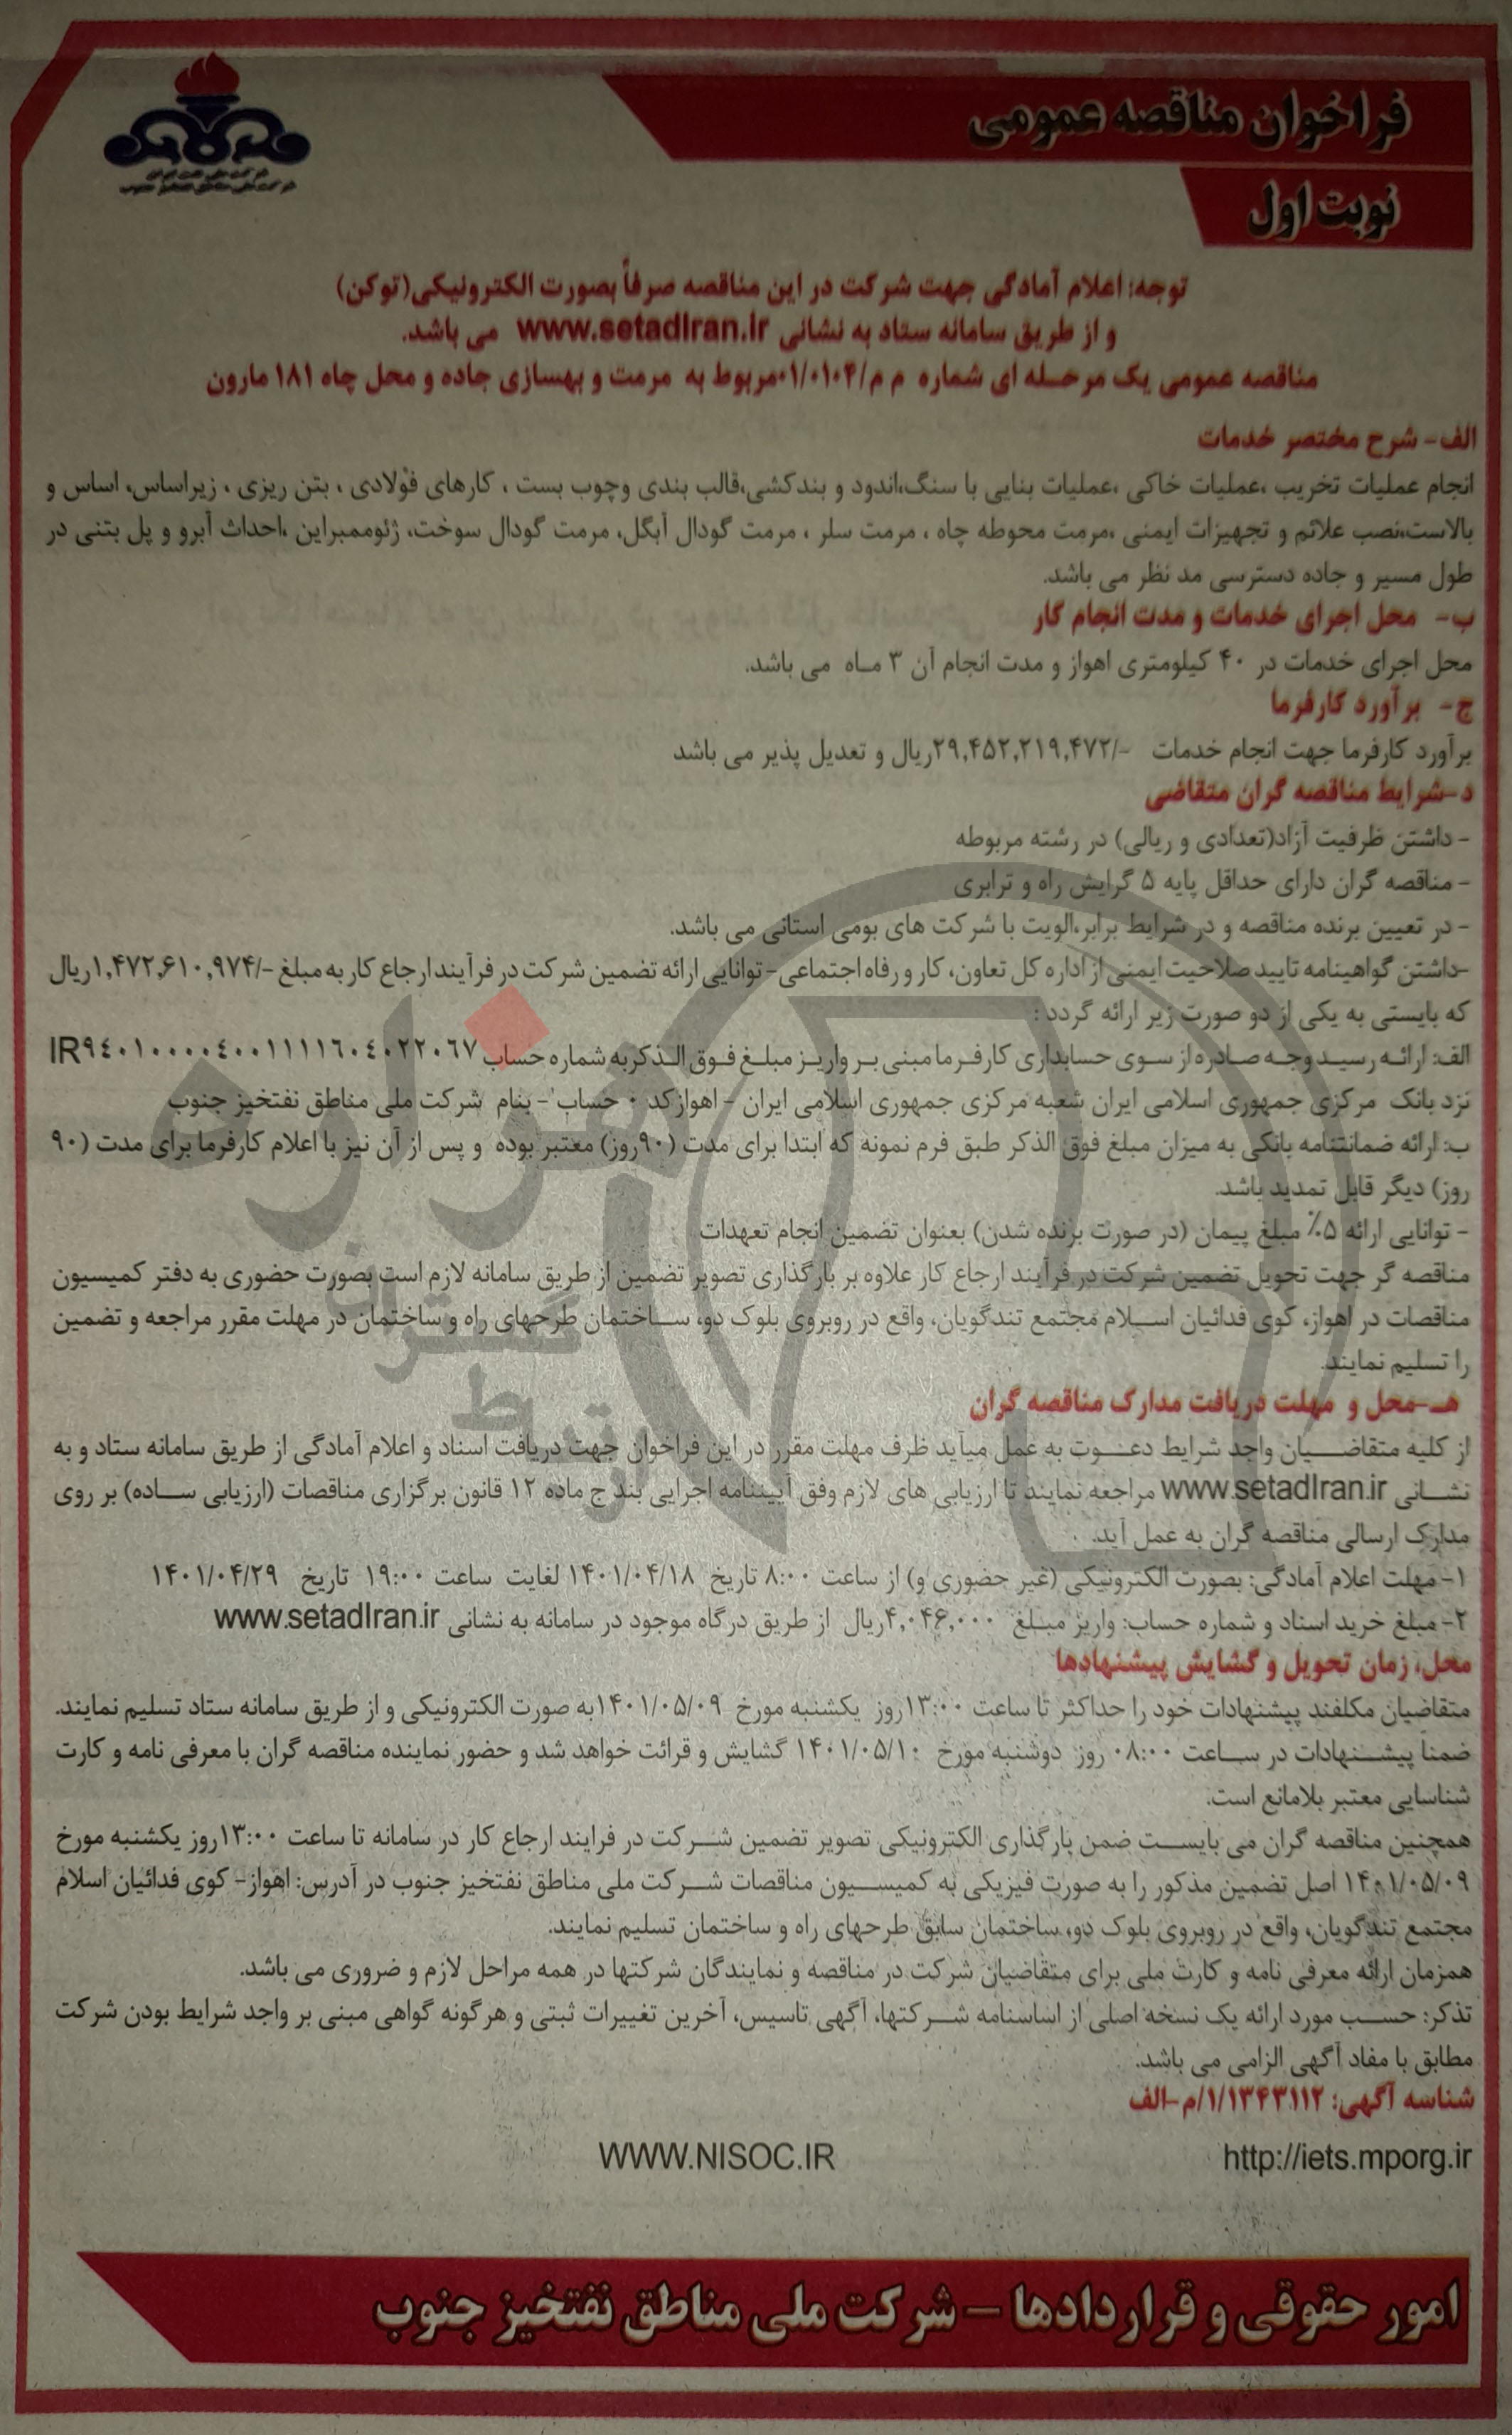 فراخوان مناقصه عمومی
نوبت اول
توجه: اعلام آمادگی جهت شرکت در این مناقصه صرفاً بصورت الکترونیکی(توکن)
و از طریق سامانه ستاد به نشانی www.setadIran.ir می باشد.
مناقصه عمومی یک مرحله ای شماره م م/۰۱/۰۱۰۴مربوط به مرمت و بهسازی جاده و محل چاه ۱۸۱ مارون
الف- شرح مختصر خدمات
انجام عملیات تخریب ،عملیات خاکی ،عملیات بنایی با سنگ،اندود و بندکشی،قالب بندی وچوب بست ، کارهای فولادی ، بتن ریزی ، زیراساس، اساس و
بالاست،نصب علائم و تجهیزات ایمنی ،مرمت محوطه چاه ، مرمت سلر ، مرمت گودال آبگل، مرمت گودال سوخت، ژئوممبراین ،احداث آبرو و پل بتنی در
طول مسیر و جاده دسترسی مد نظر می باشد.
ب- محل اجرای خدمات و مدت انجام کار
محل اجرای خدمات در ۴۰ کیلومتری اهواز و مدت انجام آن ۳ ماه می باشد.
ج- برآورد کارفرما
برآورد کارفرما جهت انجام خدمات -/۲۹,۴۵۲,۲۱۹,۴۷۲ریال و تعدیل پذیر می باشد
د-شرایط مناقصه گران متقاضی
- داشتن ظرفیت آزاد(تعدادی و ریالی) در رشته مربوطه
- مناقصه گران دارای حداقل پایه ۵ گرایش راه و ترابری
- در تعیین برنده مناقصه و در شرایط برابر،الویت با شرکت های بومی استانی می باشد.
-داشتن گواهینامه تایید صلاحیت ایمنی از اداره کل تعاون، کار و رفاه اجتماعی- توانایی ارائه تضمین شرکت در فرآیند ارجاع کار به مبلغ -/۱,۴۷۲,۶۱۰,۹۷۴ریال
که بایستی به یکی از دو صورت زیر ارائه گردد :
الف: ارائه رسید وجه صادره از سوی حسابداری کارفرما مبنی بر واریز مبلغ فوق الذکربه شماره حساب IR۹٤۰۱۰۰۰۰٤۰۰۱۱۱۱٦۰٤۰۲۲۰٦۷
نزد بانک مرکزی جمهوری اسلامی ایران شعبه مرکزی جمهوری اسلامی ایران - اهوازکد ۰ حساب - بنام شرکت ملی مناطق نفتخیز جنوب
ب: ارائه ضمانتنامه بانکی به میزان مبلغ فوق الذکر طبق فرم نمونه که ابتدا برای مدت (۹۰روز) معتبر بوده و پس از آن نیز با اعلام کارفرما برای مدت (۹۰
روز) دیگر قابل تمدید باشد.
- توانایی ارائه ۵٪ مبلغ پیمان (در صورت برنده شدن) بعنوان تضمین انجام تعهدات
مناقصه گر جهت تحویل تضمین شرکت در فرآیند ارجاع کار علاوه بر بارگذاری تصویر تضمین از طریق سامانه لازم است بصورت حضوری به دفتر کمیسیون
مناقصات در اهواز، کوی فدائیان اسلام مجتمع تندگویان، واقع در روبروی بلوک دو، ساختمان طرحهای راه و ساختمان در مهلت مقرر مراجعه و تضمین
را تسلیم نمایند.
هـ-محل و مهلت دریافت مدارک مناقصه گران
از کلیه متقاضیان واجد شرایط دعوت به عمل میآید ظرف مهلت مقرر در این فراخوان جهت دریافت اسناد و اعلام آمادگی از طریق سامانه ستاد و به
نشانی www.setadIran.ir مراجعه نمایند تا ارزیابی های لازم وفق آییننامه اجرایی بند ج ماده ۱۲ قانون برگزاری مناقصات (ارزیابی ساده) بر روی
مدارک ارسالی مناقصه گران به عمل آید.
۱- مهلت اعلام آمادگی: بصورت الکترونیکی (غیر حضوری و) از ساعت ۸:۰۰ تاریخ ۱۴۰۱/۰۴/۱۸ لغایت ساعت ۱۹:۰۰ تاریخ ۱۴۰۱/۰۴/۲۹
۲- مبلغ خرید اسناد و شماره حساب: واریز مبلغ ۴,۰۴۶,۰۰۰ریال از طریق درگاه موجود در سامانه به نشانی www.setadIran.ir
محل، زمان تحویل و گشایش پیشنهادها
متقاضیان مکلفند پیشنهادات خود را حداکثر تا ساعت ۱۳:۰۰روز یکشنبه مورخ ۱۴۰۱/۰۵/۰۹به صورت الکترونیکی و از طریق سامانه ستاد تسلیم نمایند.
ضمناً پیشنهادات در ساعت ۰۸:۰۰ روز دوشنبه مورخ ۱۴۰۱/۰۵/۱۰ گشایش و قرائت خواهد شد و حضور نماینده مناقصه گران با معرفی نامه و کارت
شناسایی معتبر بلامانع است.
همچنین مناقصه گران می بایست ضمن بارگذاری الکترونیکی تصویر تضمین شرکت در فرایند ارجاع کار در سامانه تا ساعت ۱۳:۰۰روز یکشنبه مورخ
۱۴۰۱/۰۵/۰۹ اصل تضمین مذکور را به صورت فیزیکی به کمیسیون مناقصات شرکت ملی مناطق نفتخیز جنوب در آدرس: اهواز- کوی فدائیان اسلام
مجتمع تندگویان، واقع در روبروی بلوک دو، ساختمان سابق طرحهای راه و ساختمان تسلیم نمایند.
همزمان ارائه معرفی نامه و کارت ملی برای متقاضیان شرکت در مناقصه و نمایندگان شرکتها در همه مراحل لازم و ضروری می باشد.
تذکر: حسب مورد ارائه یک نسخه اصلی از اساسنامه شرکتها، آگهی تاسیس، آخرین تغییرات ثبتی و هرگونه گواهی مبنی بر واجد شرایط بودن شرکت
مطابق با مفاد آگهی الزامی می باشد.
شناسه آگهی: ۱/۱۳۴۳۱۱۲/م-الف
http://iets.mporg.ir
WWW.NISOC.IR
امور حقوقی و قراردادها – شرکت ملی مناطق نفتخیز جنوب